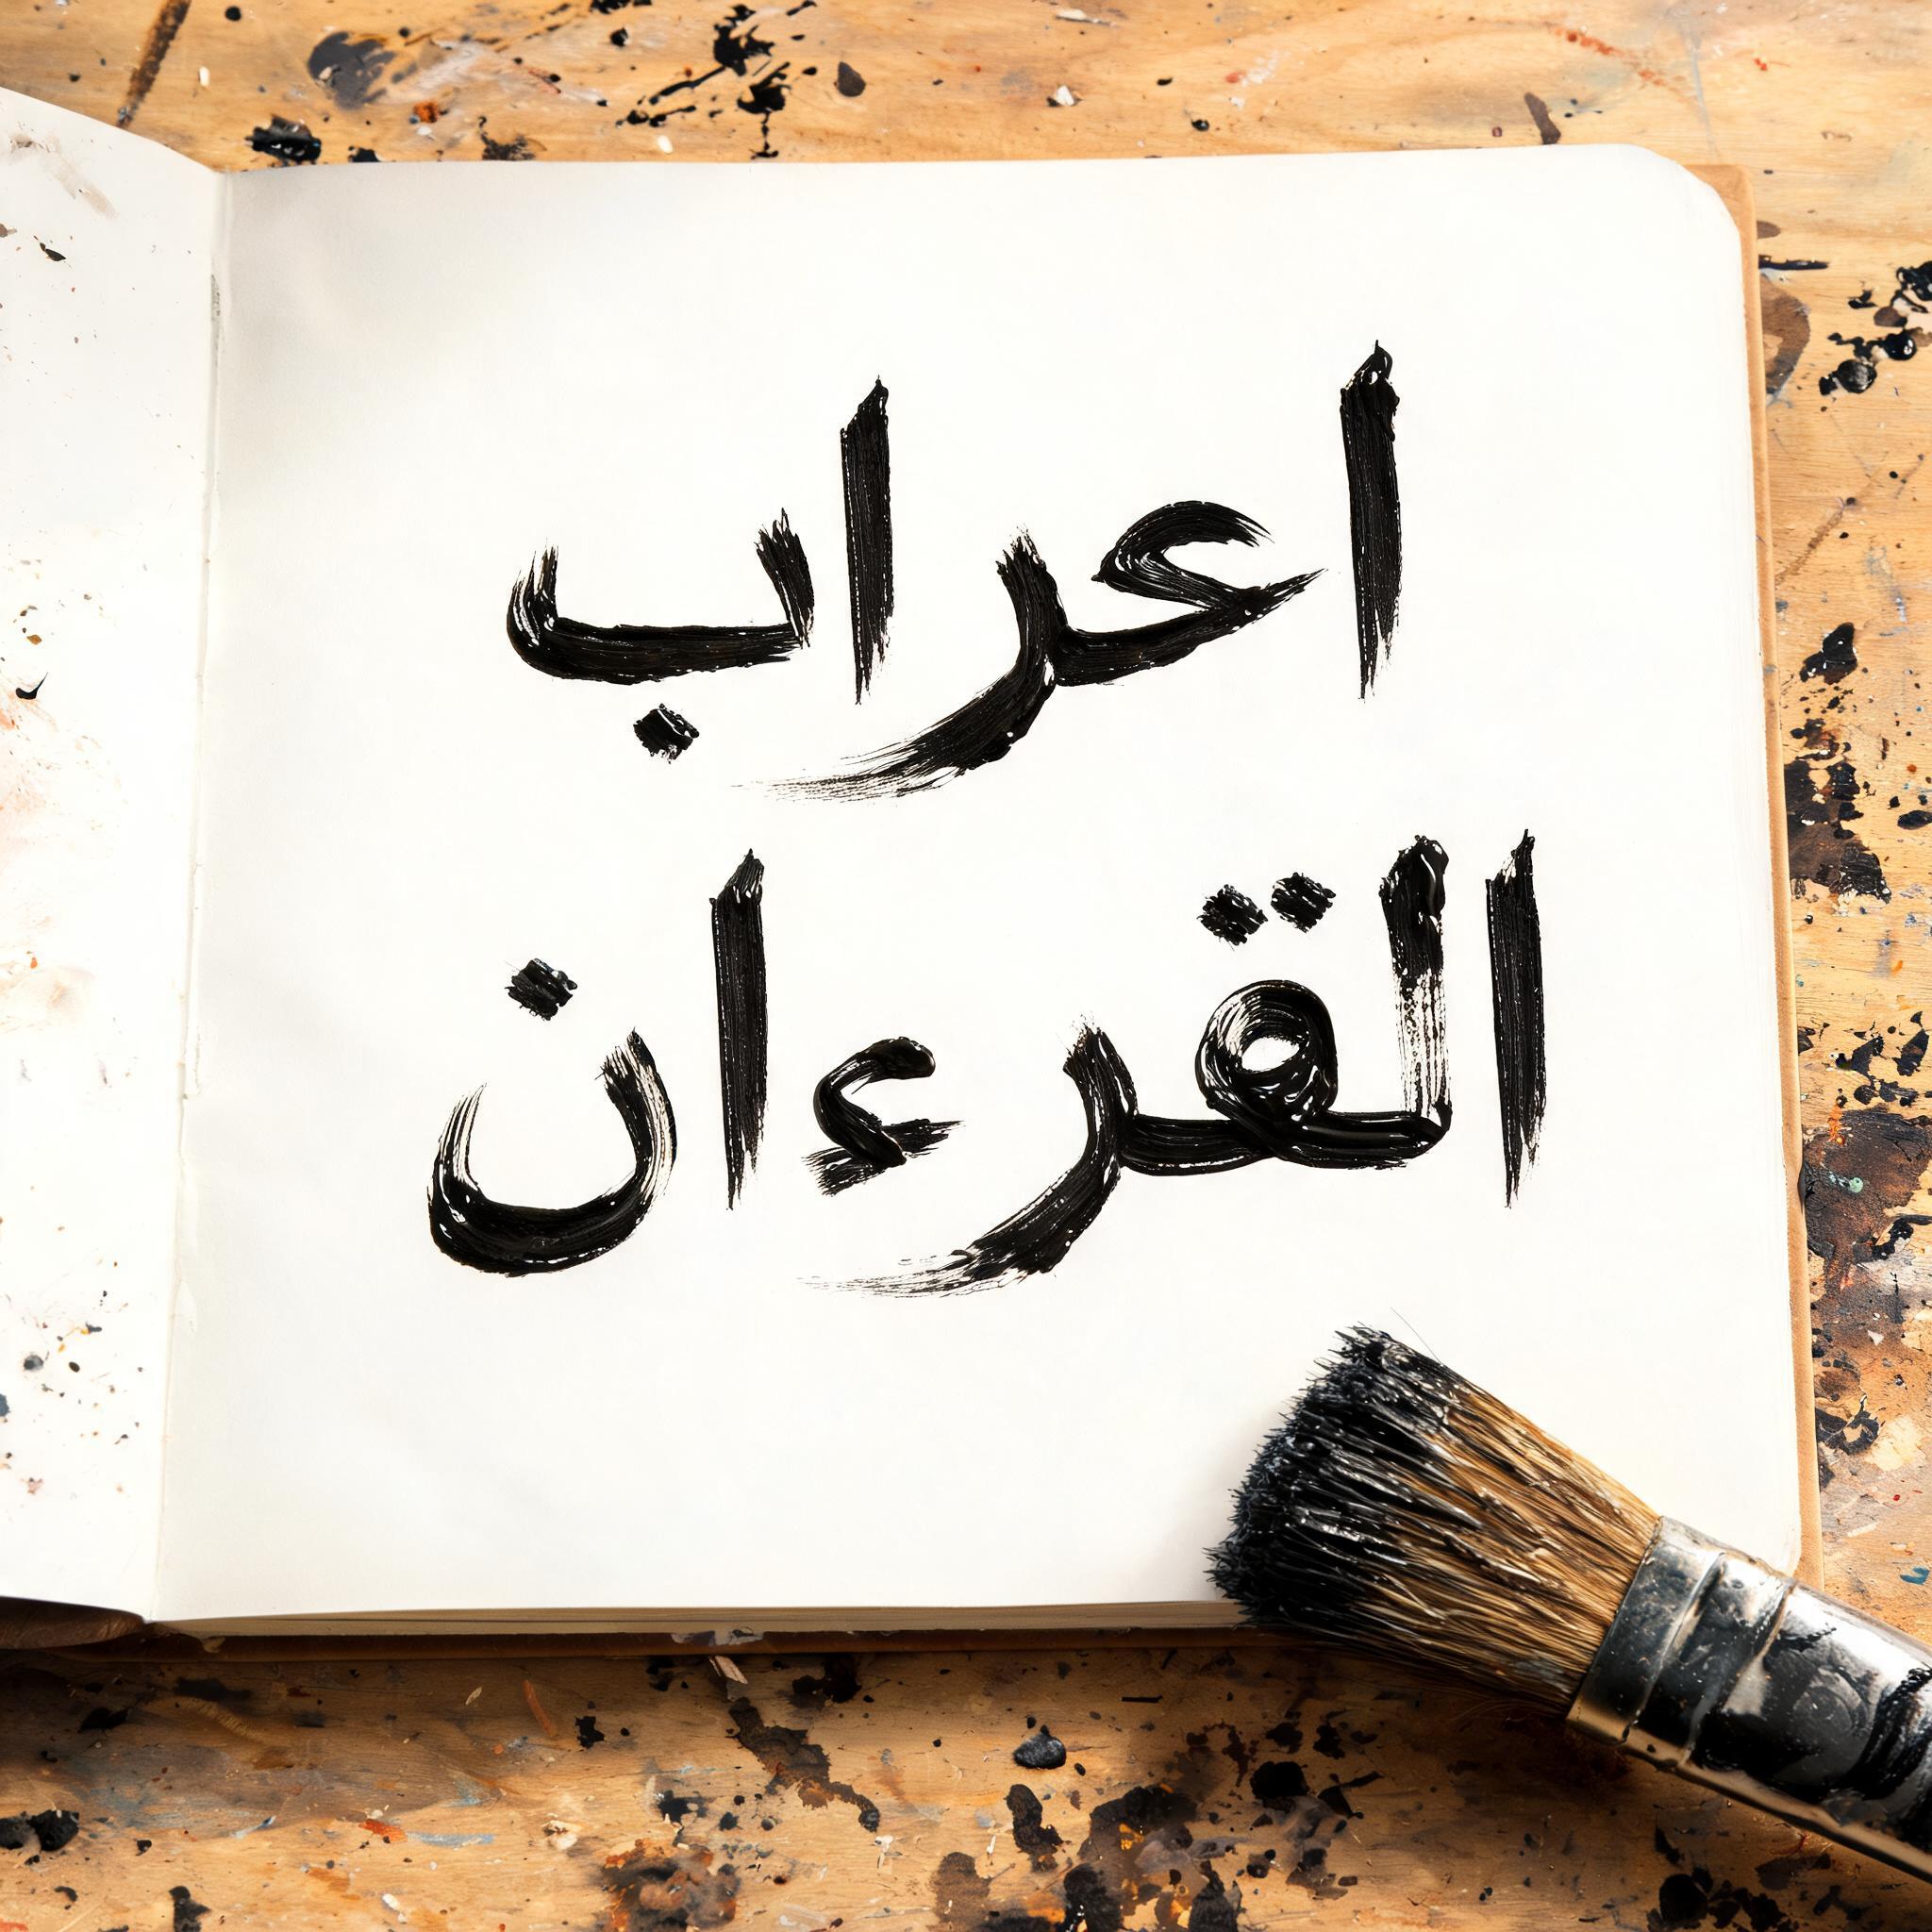 اعراب
القرءان